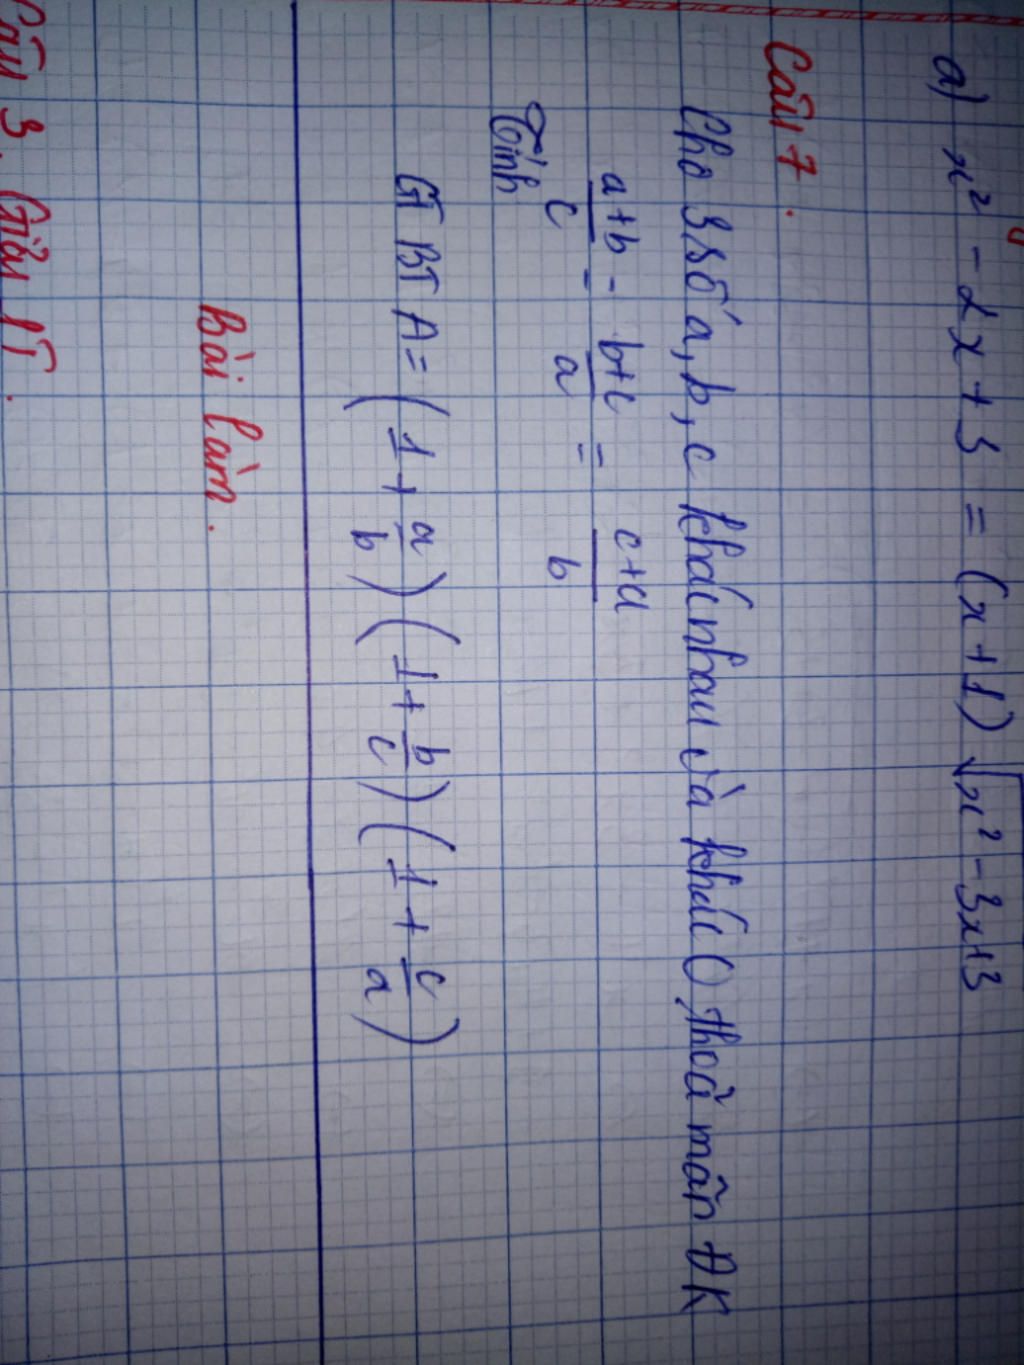 a) x² - 2x + 3 = (x + 1) √x² - 3x + 3
Câu 7.
Cho 3 số a, b, c khác nhau và khác 0 thoả mãn ĐK
a+b/c = b+c/a = c+a/b
Tính
GT BT A = (1 + a/b) (1 + b/c) (1 + c/a)
Bài làm.
Câu 3. Giải PT.